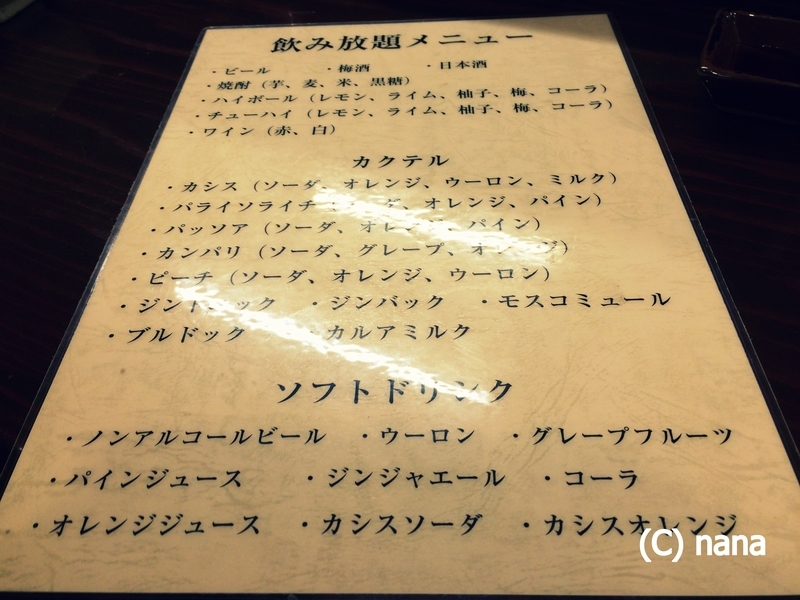 飲み放題メニュー
・ビール ・梅酒 ・日本酒
・焼酎（芋、麦、米、黒糖）
・ハイボール（レモン、ライム、柚子、梅、コーラ）
・チューハイ（レモン、ライム、柚子、梅、コーラ）
・ワイン（赤、白）
カクテル
・カシス（ソーダ、オレンジ、ウーロン、ミルク）
・パライソライチ（ソーダ、オレンジ、パイン）
・パッソア（ソーダ、オレンジ、パイン）
・カンパリ（ソーダ、グレープ、オレンジ）
・ピーチ（ソーダ、オレンジ、ウーロン）
・ジントニック ・ジンバック ・モスコミュール
・ブルドック ・カルアミルク
ソフトドリンク
・ノンアルコールビール ・ウーロン ・グレープフルーツ
・パインジュース ・ジンジャエール ・コーラ
・オレンジジュース ・カシスソーダ ・カシスオレンジ
(C) nana